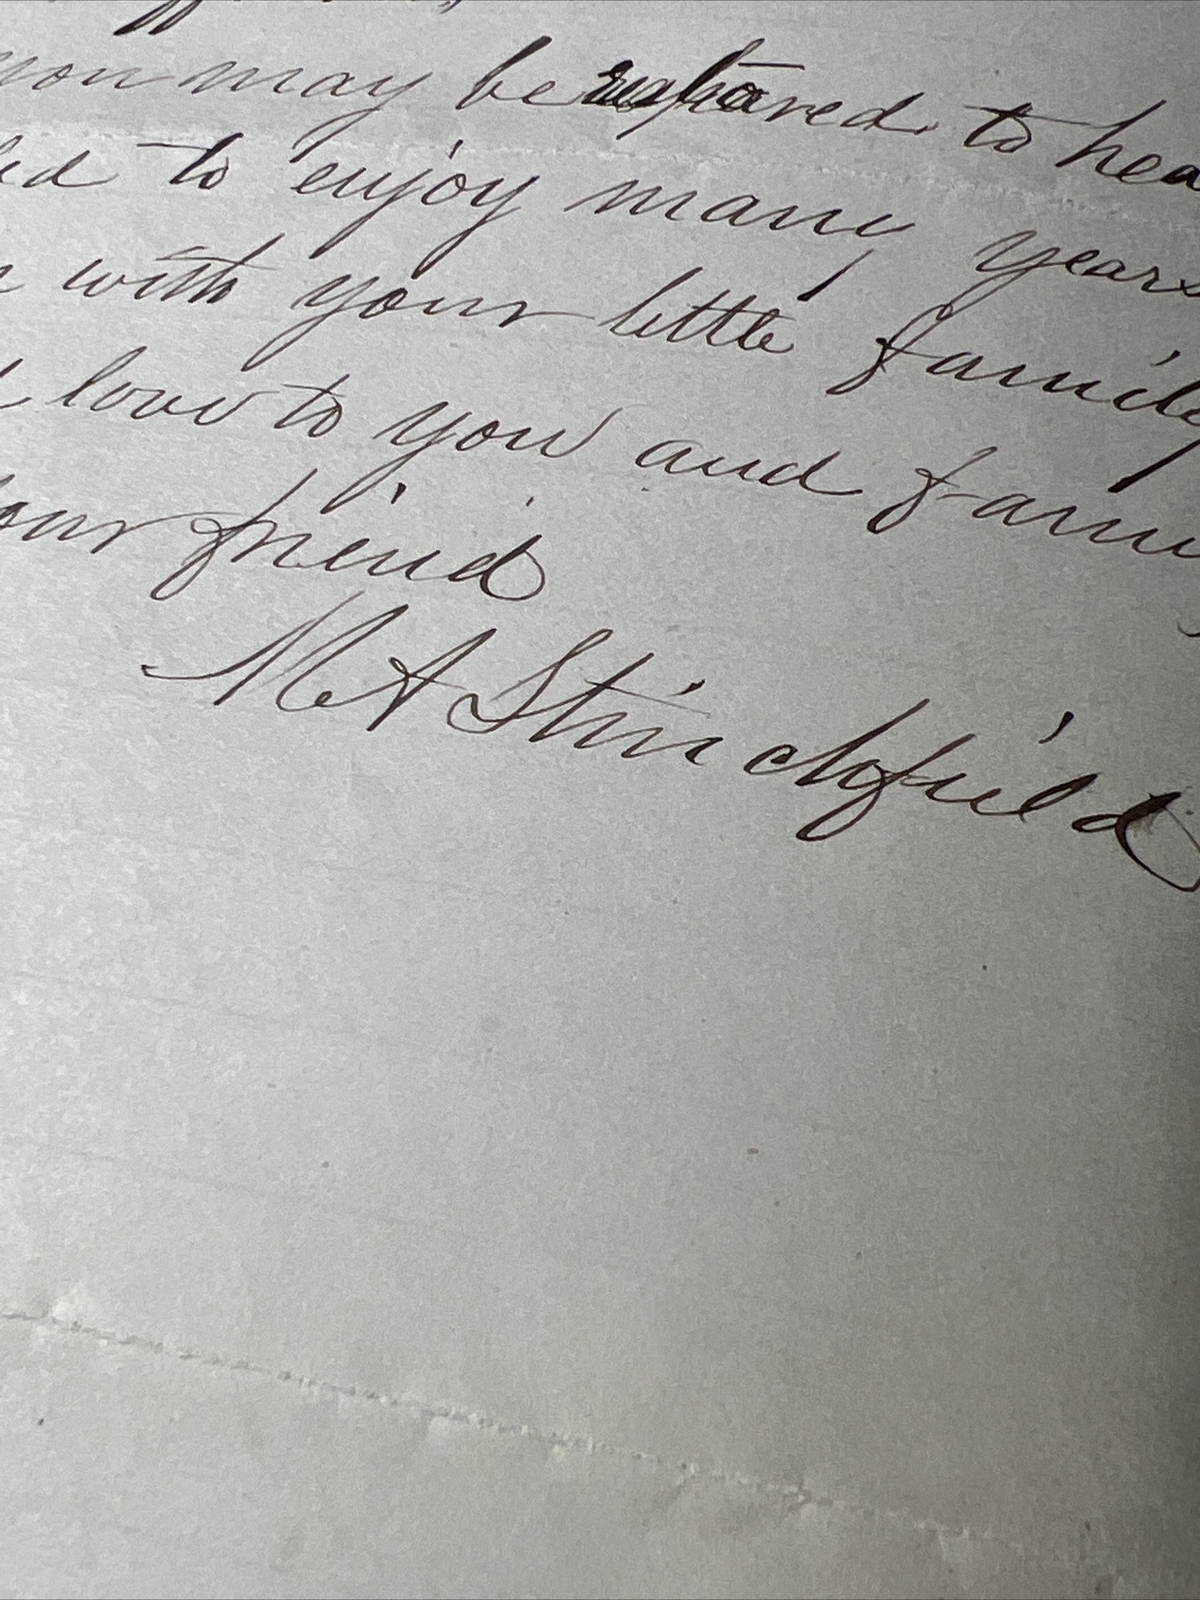 you may be restored to hea
ed to enjoy many years
with your little family
love to you and fami
our friend
M A Stinchfield